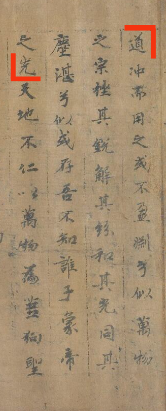 道冲而用之或不盈渕兮似萬物
之宗挫其銳解其紛和其光同其
塵湛兮似或存吾不知誰子象帝
之先天地不仁以萬物為芻狗聖